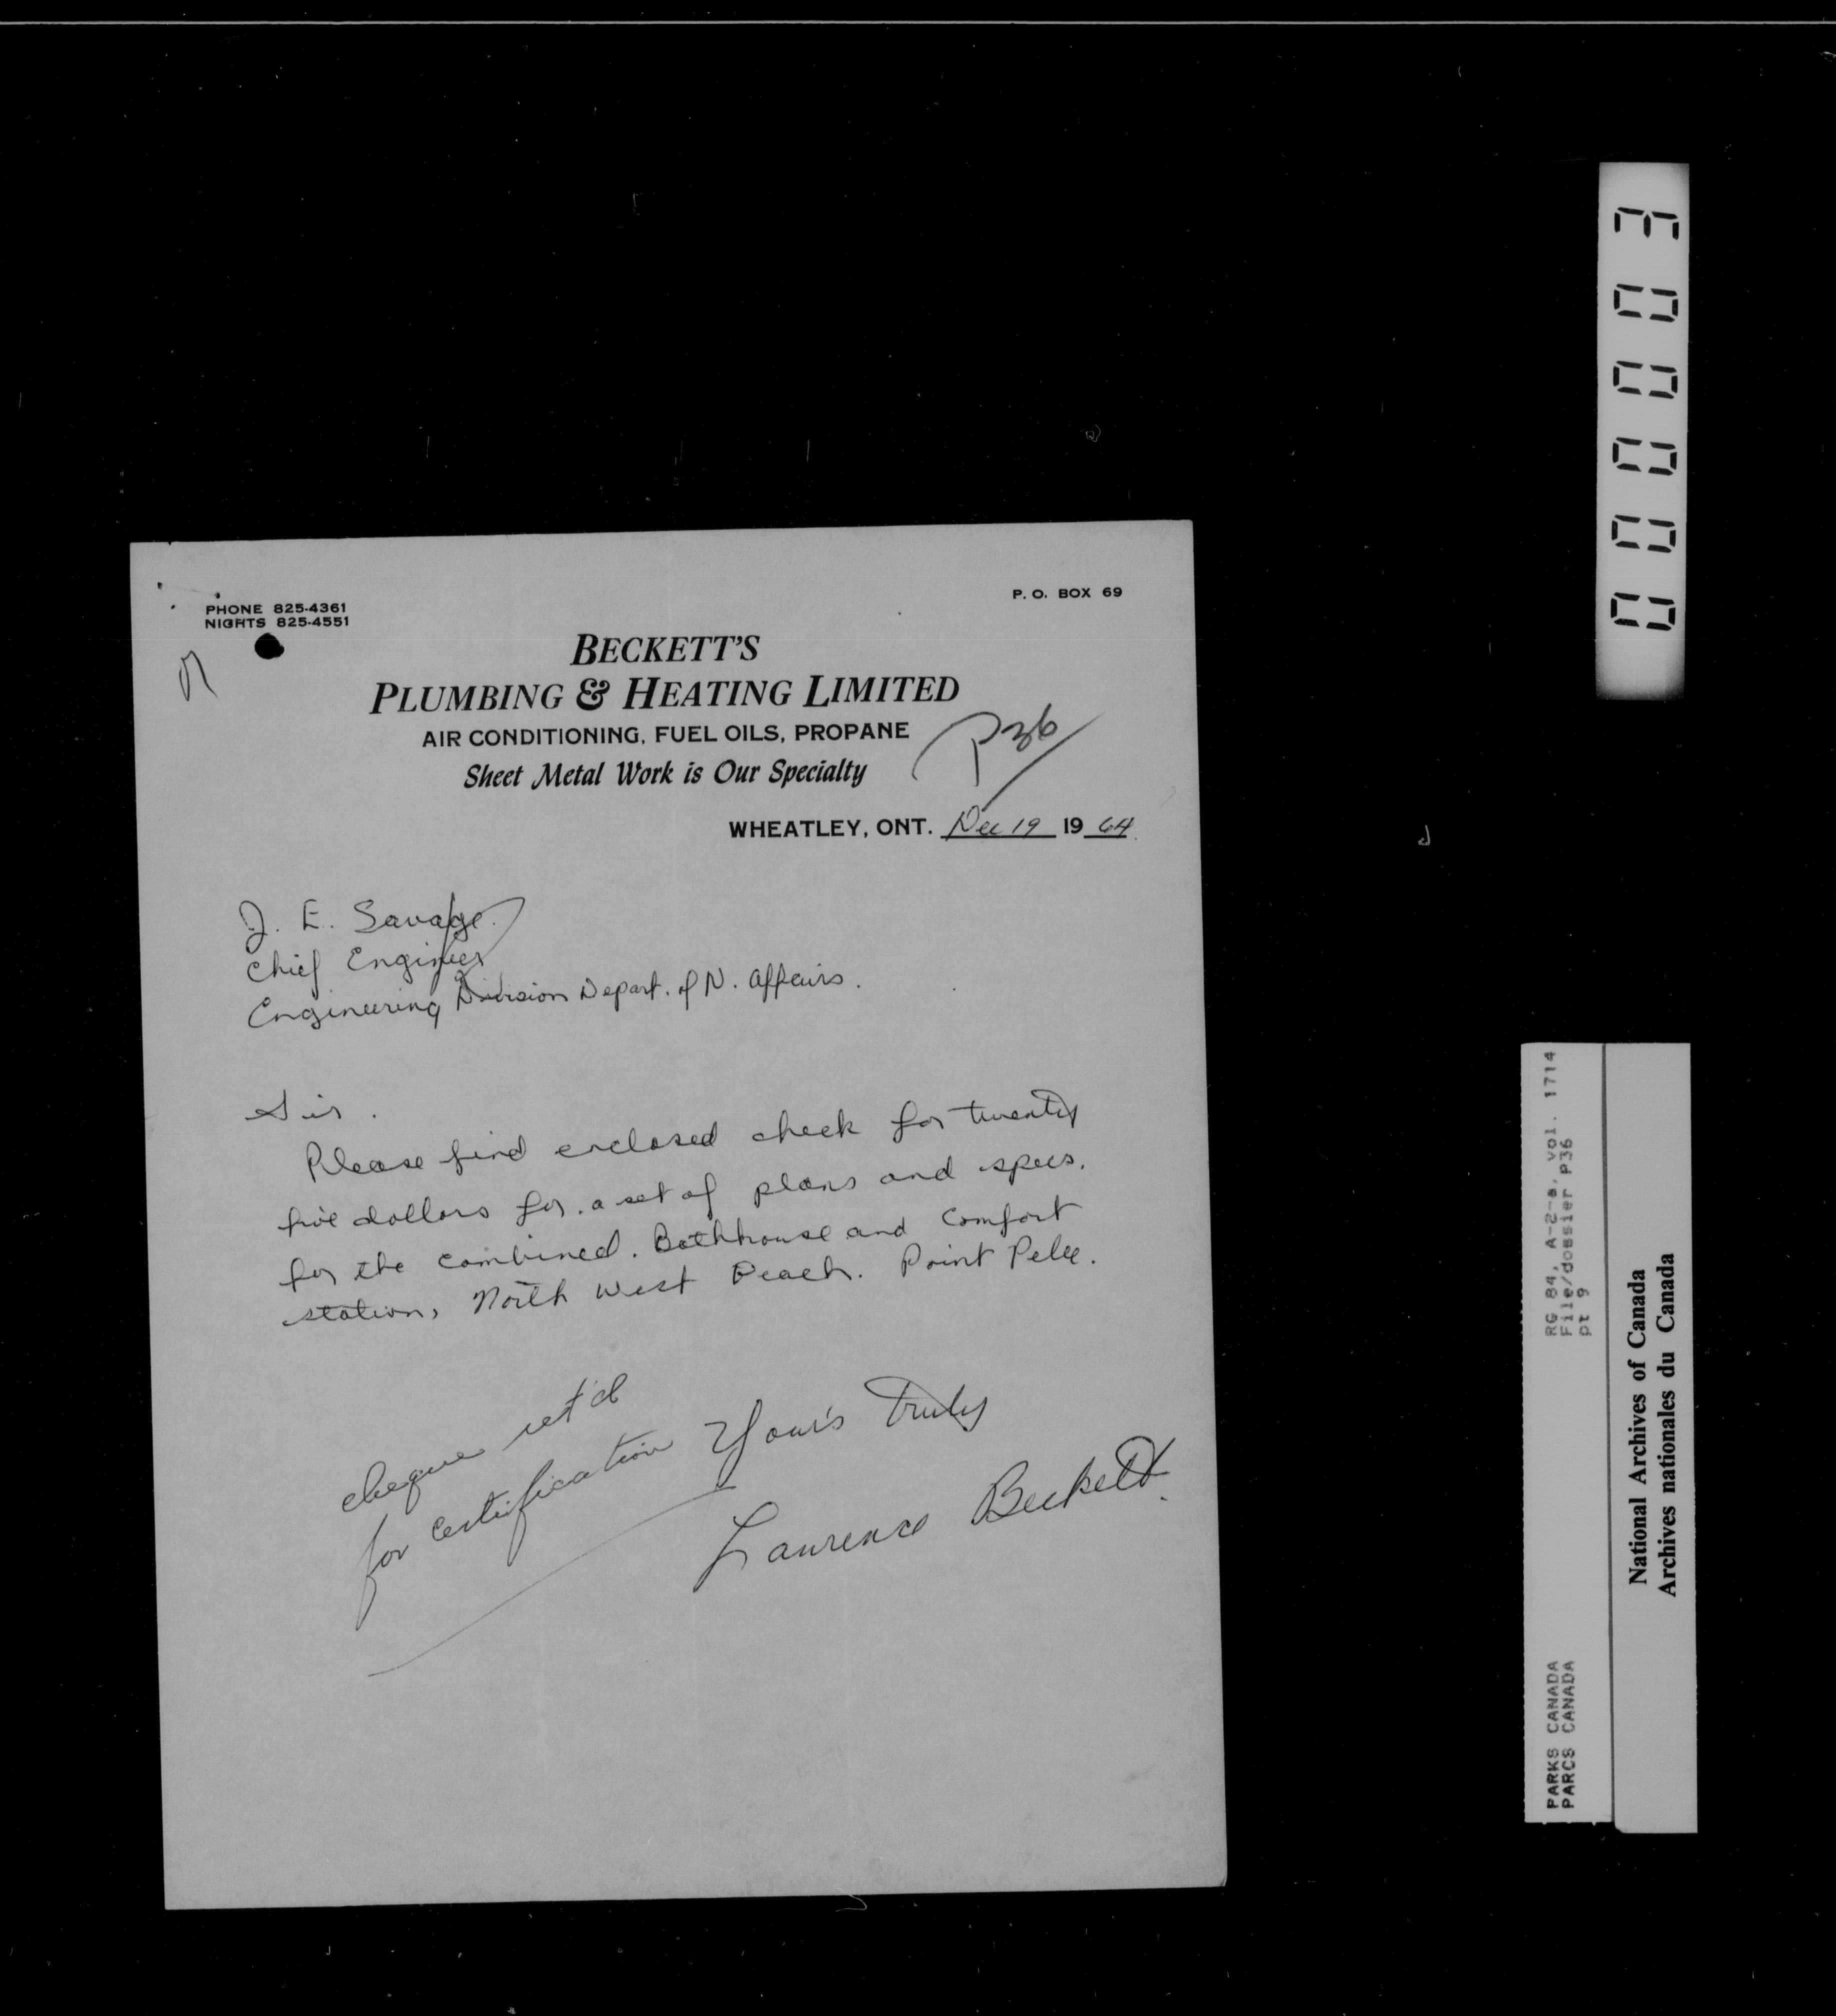 PHONE 825-4361
NIGHTS 825-4551
P. O. BOX 69
BECKETT'S
PLUMBING & HEATING LIMITED
AIR CONDITIONING, FUEL OILS, PROPANE
Sheet Metal Work is Our Specialty
P36
WHEATLEY, ONT. Dec 19 19 64
J. E. Savage.
Chief Engineer
Engineering Division Depart. of N. Affairs.
Sir.
Please find enclosed check for twenty
five dollars for a set of plans and specs.
for the combined. Bathhouse and Comfort
station, North West Beach. Point Pelee.
cheque ret'd
for certification
Your's Truly
Laurence Beckett.
000003
RG 84, A-2-a, vol. 1714
File/dossier P36
pt 9
PARKS CANADA
PARCS CANADA
National Archives of Canada
Archives nationales du Canada